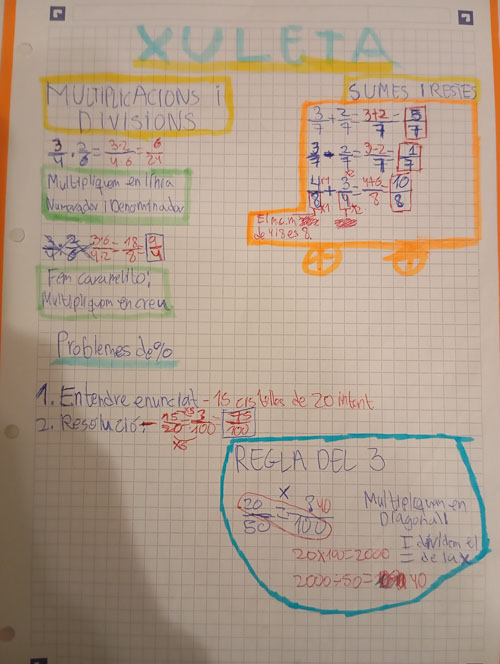 XULETA
MULTIPLICACIONS i
DIVISIONS
3/4 · 2/6 = 3·2/4·6 = 6/24
Multipliquem en línia
Numerador i Denominador
3/4 : 2/6 = 3·6/4·2 = 18/8 = 9/4
Fem caramelito;
Multipliquem en creu
SUMES I RESTES
3/7 + 2/7 = 3+2/7 = 5/7
3/7 - 2/7 = 3-2/7 = 1/7
4/8 + 3/4 = 4+6/8 = 10/8
El m.c.m
de 4 i 8 és 8.
Problemes de %
1. Entendre enunciat - 15 cistelles de 20 intent
2. Resolució - 15/20 = 75/100
x5
REGLA DEL 3
20/50 = x 40/100
Multipliquem en
Diagonal
I dividem el
= de la x
20x100=2000
2000÷50= 40